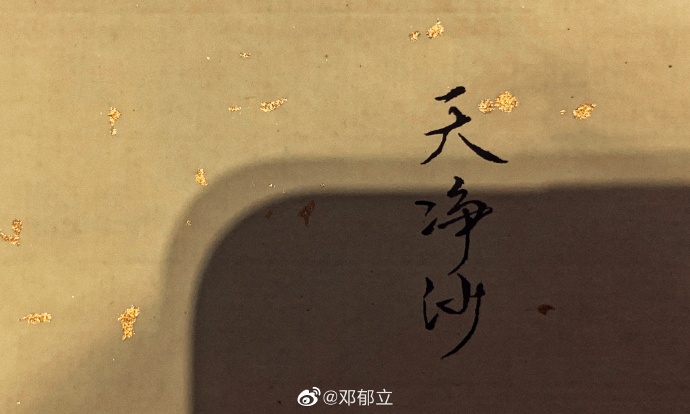 天净沙
@邓郁立